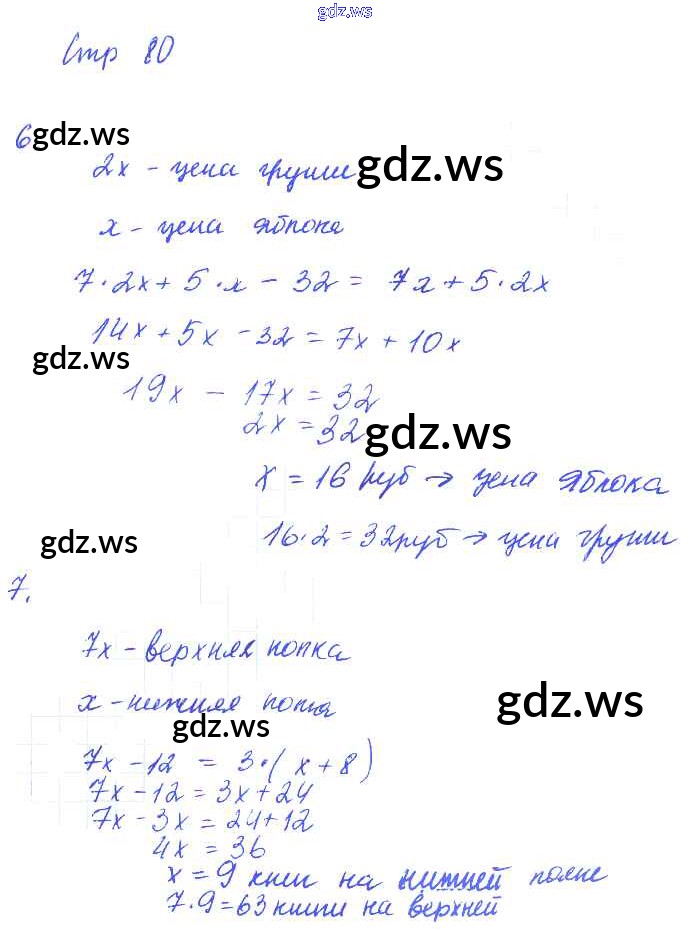 gdz.ws
Стр 80
6 gdz.ws
2x - цена груши gdz.ws
x - цена яблока
7·2x + 5·x - 32 = 7x + 5·2x
14x + 5x - 32 = 7x + 10x
gdz.ws
19x - 17x = 32
2x = 32 gdz.ws
x = 16 руб → цена яблока
16·2 = 32 руб → цена груши
gdz.ws
7.
7x - верхняя полка
x - нижняя полка
gdz.ws
gdz.ws
7x - 12 = 3·(x + 8)
7x - 12 = 3x + 24
7x - 3x = 24 + 12
4x = 36
x = 9 книг на нижней полке
7·9 = 63 книги на верхней